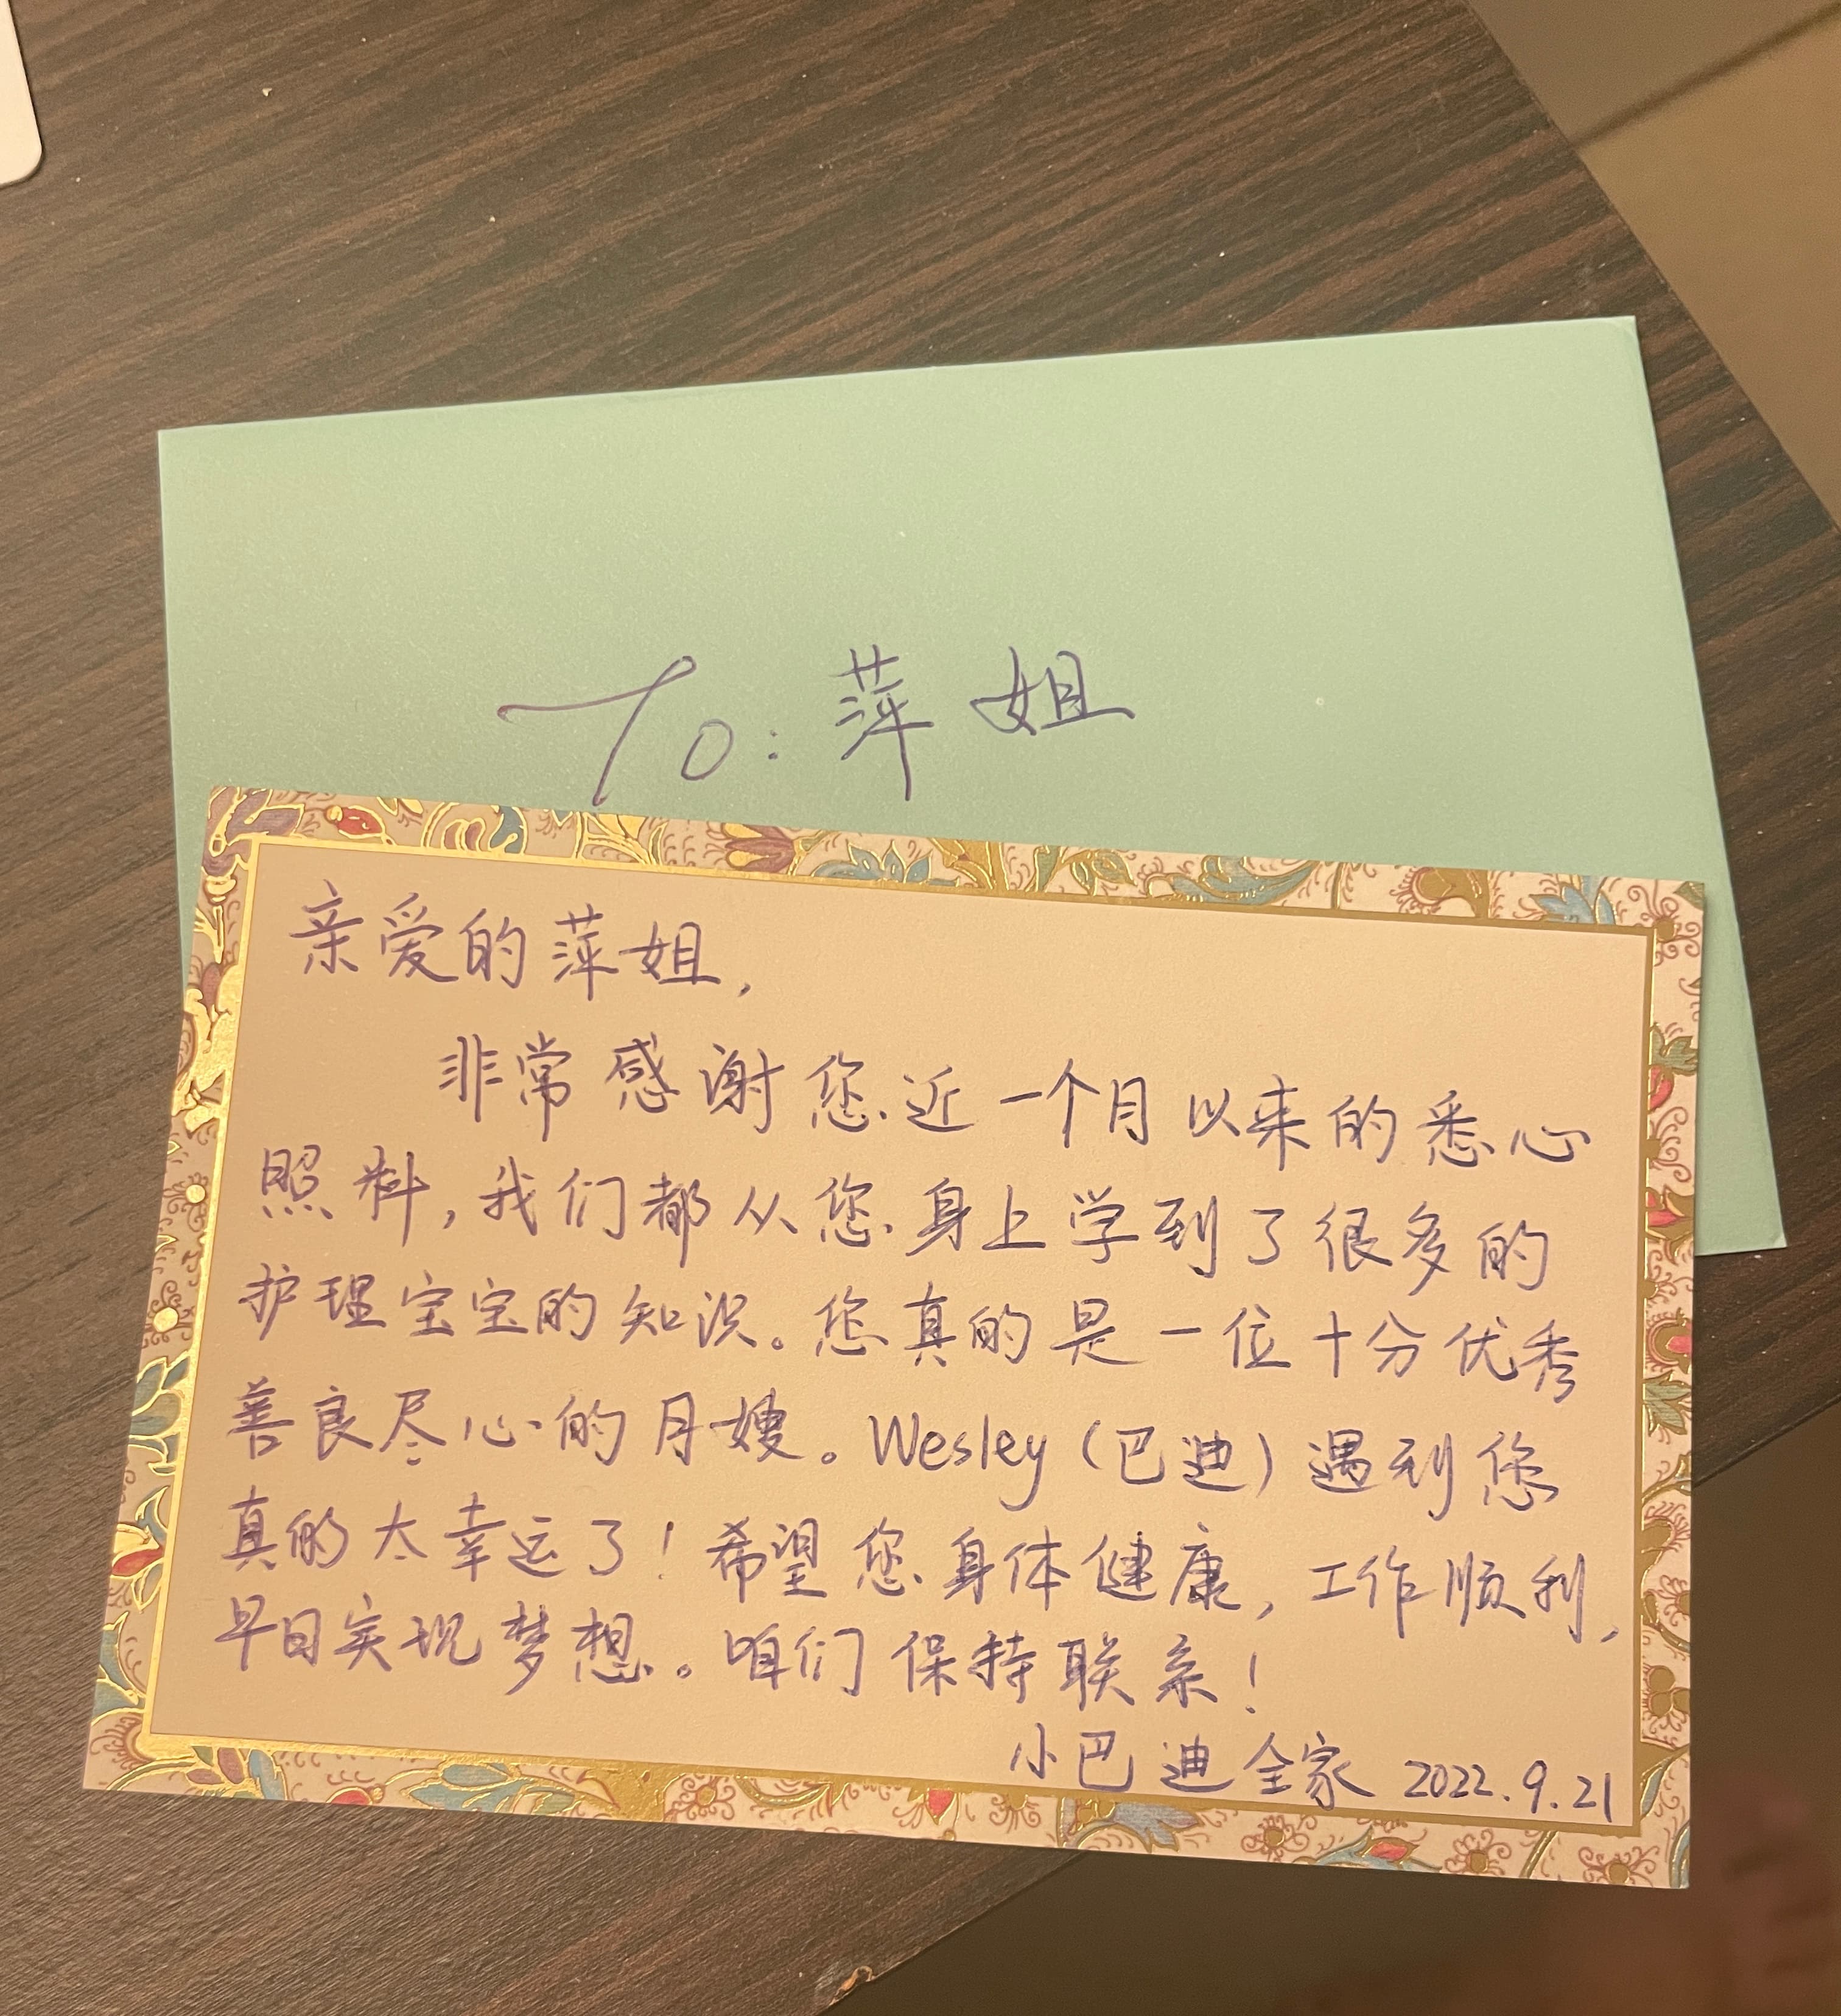 To: 萍姐
亲爱的萍姐,
非常感谢您近一个月以来的悉心
照料,我们都从您身上学到了很多的
护理宝宝的知识。您真的是一位十分优秀
善良尽心的月嫂。Wesley(巴迪)遇到您
真的太幸运了!希望您身体健康,工作顺利,
早日实现梦想。咱们保持联系!
小巴迪全家 2022.9.21